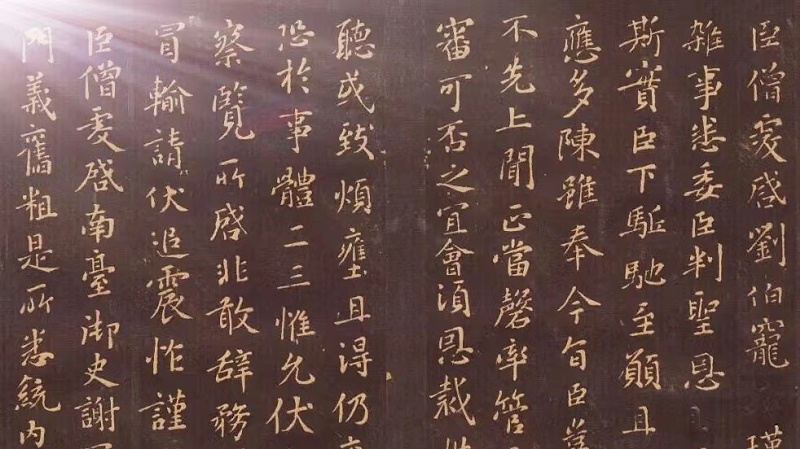 臣僧虔啓劉伯寵
雜事悉委臣判聖恩
斯實臣下驅馳至願且
應多陳雖奉今旨臣
不先上聞正當罄率管
審可否之宜會須恩裁
聽或致煩壅且得仍
恐於事體二三惟允伏
察覽所啓非敢辞務
冒輸請伏追震怍謹
臣僧虔啓南臺御史謝
門義舊粗是所悉統内